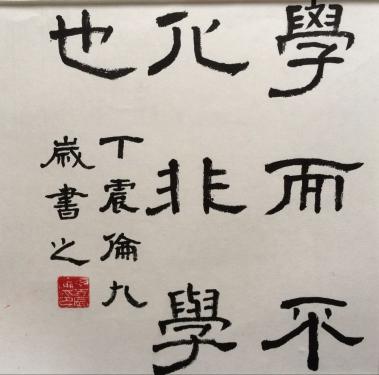 學而不
化非學
也
丁震倫九
歲書之